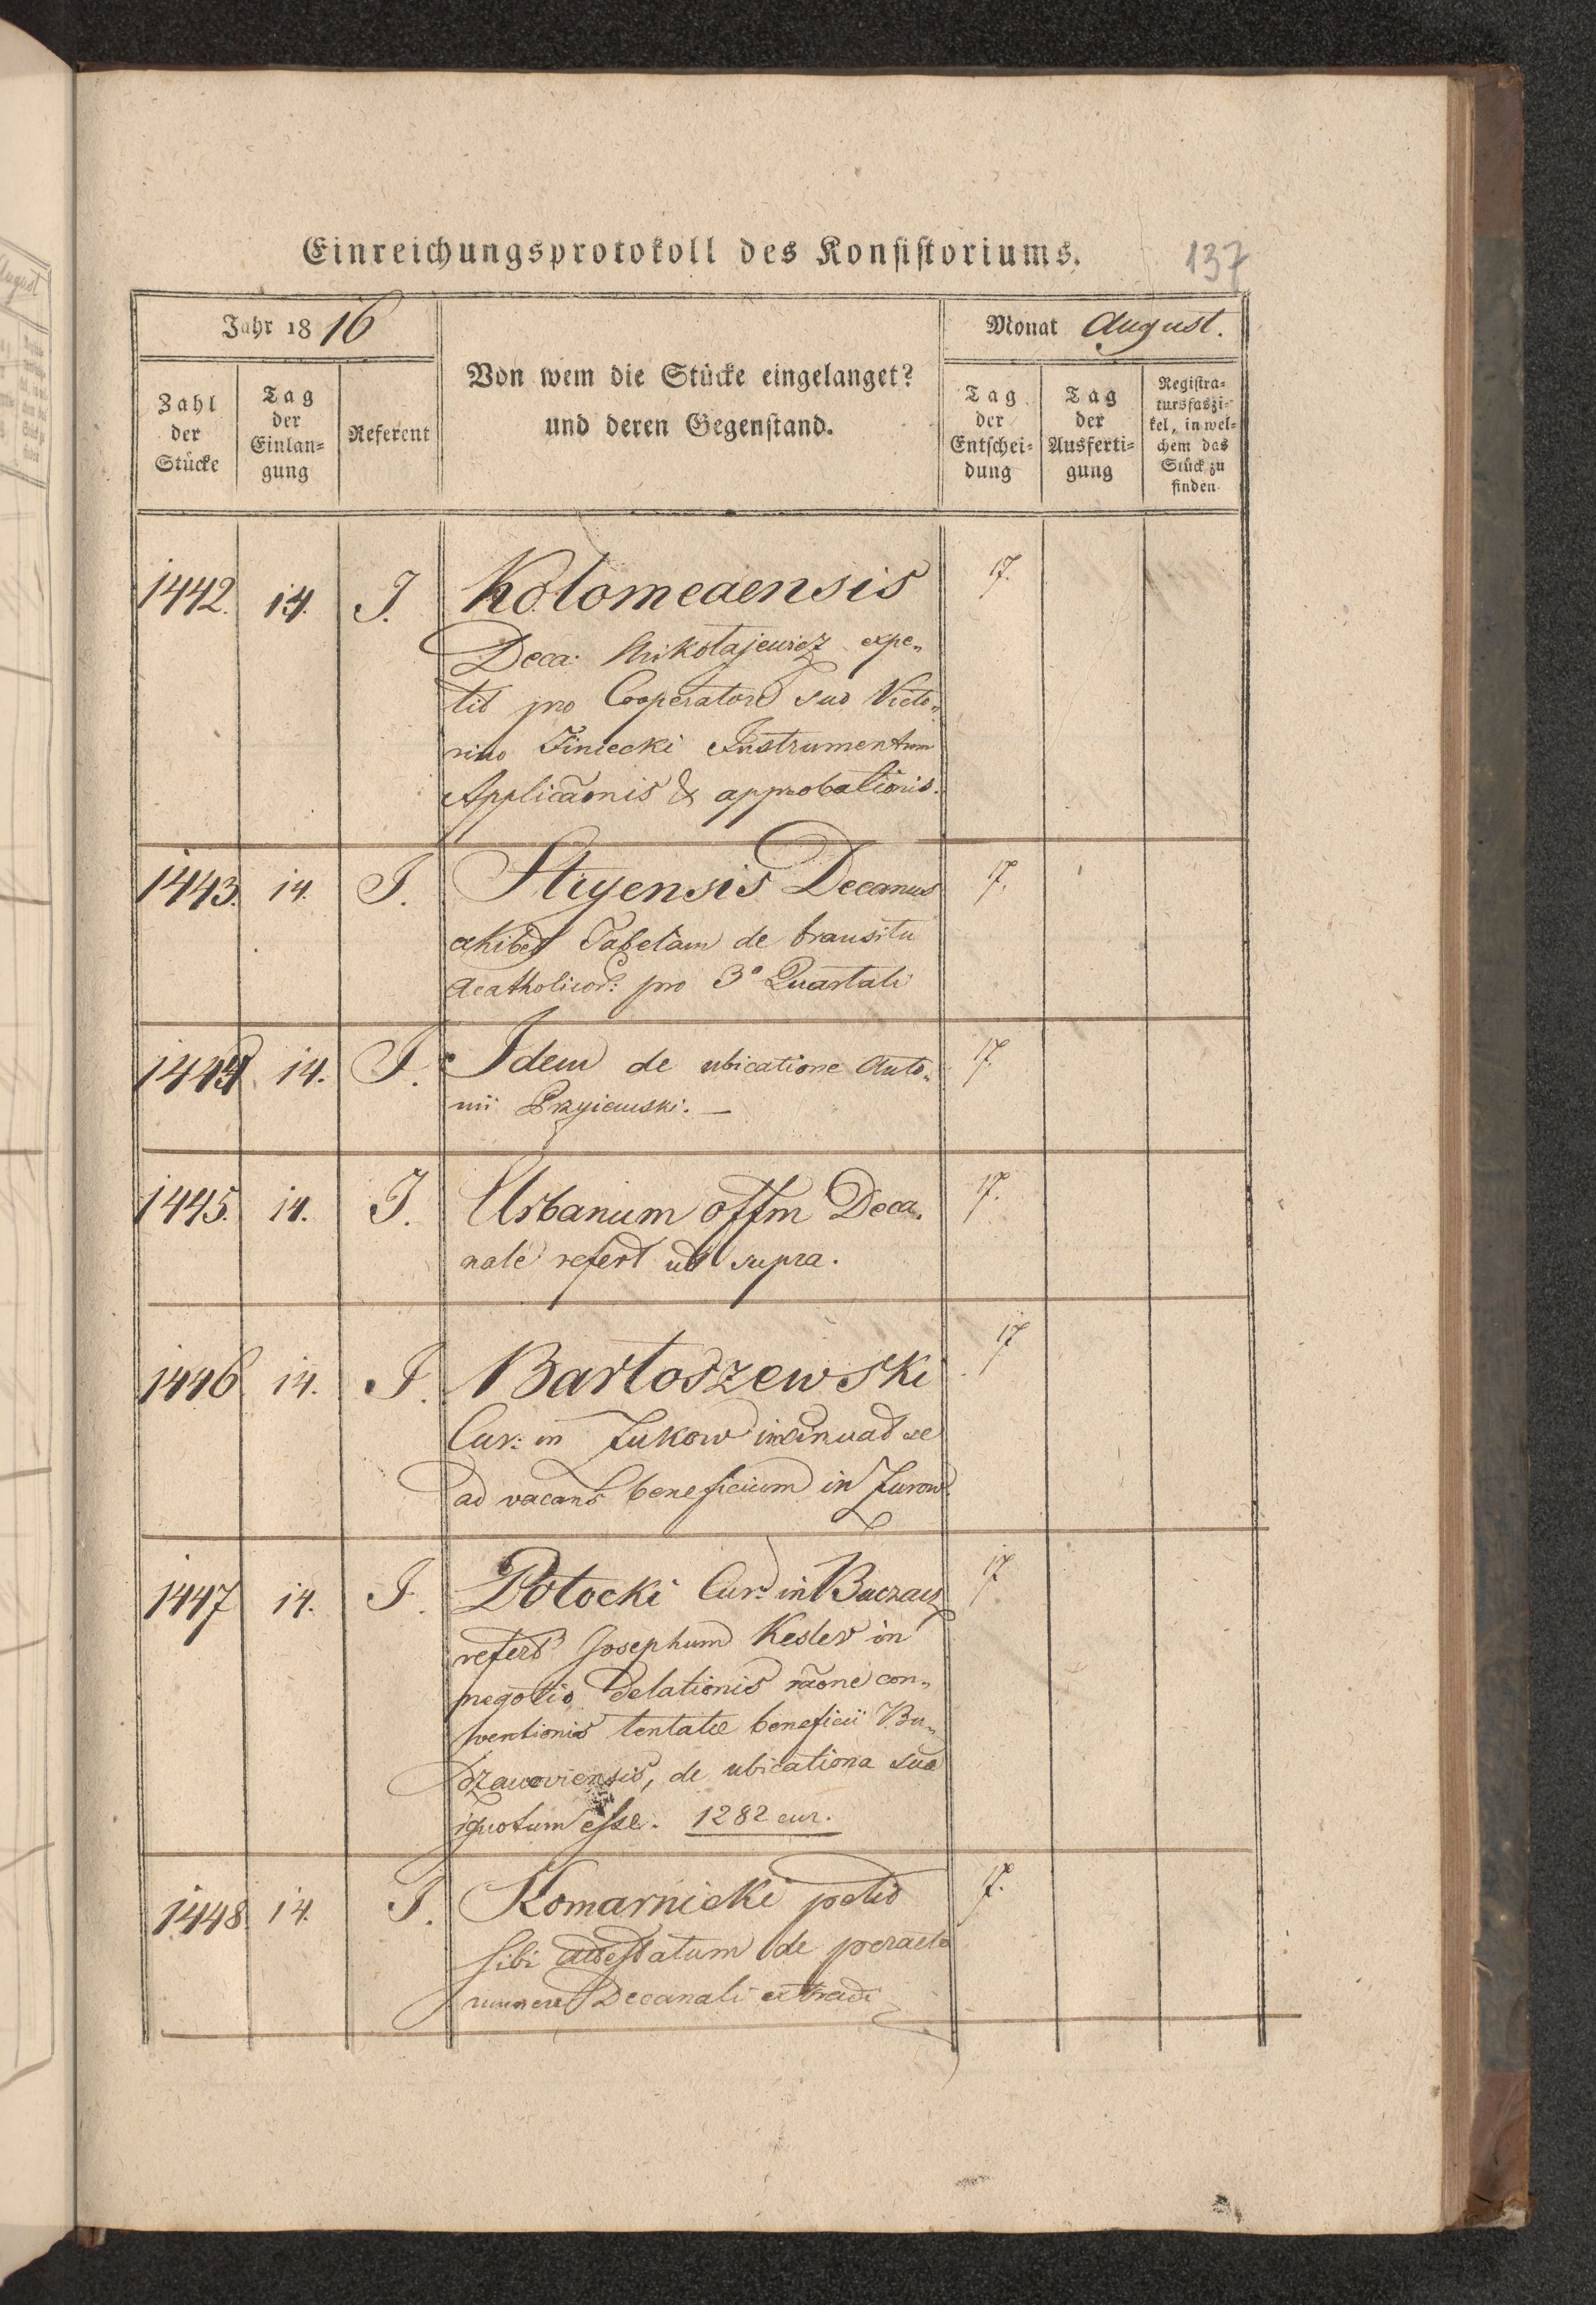 Einreichungsprotokoll des Konsistoriums.
137
Jahr 1816
Monat August.
Zahl der Stücke
Tag der Einlan=gung
Referent
Von wem die Stücke eingelanget?
und deren Gegenstand.
Tag der Entschei=dung
Tag der Ausferti=gung
Registra=tursfaszi=kel, in wel=chem das Stück zu finden
1442. 14. J. Kolomeaensis 17.
Deca: Mikołajewicz expe„
tit pro Cooperatore suo Victo„
rino Finiecki Instrumentum
Applicaõnis & approbationis.
1443. 14. J. Stryensis Decanus 17.
exhibet Tabelam de transitu
Acatholicor: pro 3º Quartali
1444. 14. J. Idem de ubicatione Anto„ 17.
nii Przyiemski. —
1445. 14. J. Urbanum offm Deca. 17.
nale refert ut supra.
1446 14. J. Bartoszewski 17
Cur: in Zukow insinuat se
ad vacans beneficium in Zurow
1447 14. J. Potocki Cur: in Buczacz 17
refert Josephum Kesler in
negotio delationis raõne con„
ventionis tentatae beneficii Bu„
czacoviensis, de ubicatione sua
ignotum esse. 1282 cur.
1448. 14. J. Komarnicki petit 17.
sibi attestatum de peracto
munere Decanali extradi